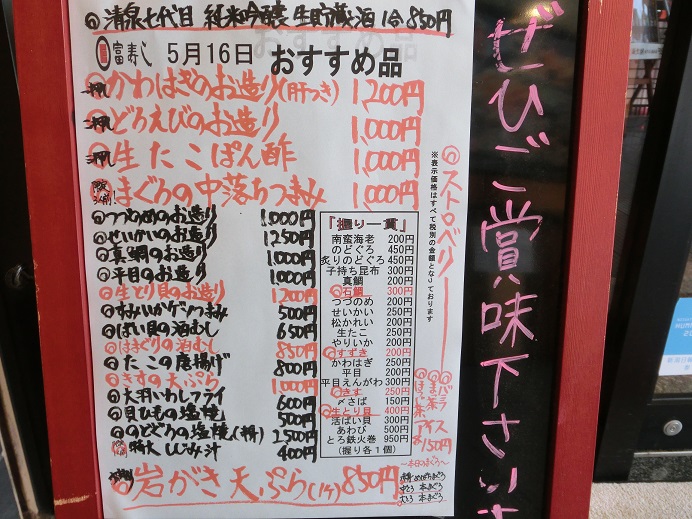 ◎清泉七代目 純米吟醸 生貯蔵酒 1合 850円
富寿し 5月16日 おすすめ品
一押 かわはぎのお造り(肝つき) 1,200円
二押 どろえびのお造り 1,000円
三押 生たこぽん酢 1,000円
まぐろの中落ちつまみ 1,000円
◎つつめのお造り 1,000円
◎せいかいのお造り 1,250円
◎真鯛のお造り 1,000円
◎平目のお造り 1,000円
◎生とり貝のお造り 1,200円
◎すみいかゲソつまみ 500円
◎ばい貝の酒むし 650円
◎はまぐりの酒むし 850円
◎たこの唐揚げ 800円
◎きすの天ぷら 1,000円
◎大羽いわしフライ 600円
◎貝ひもの塩焼 500円
◎のどぐろの塩焼(特) 2,500円
特大しじみ汁 400円
◎岩がき天ぷら(1ケ) 850円
『握り一貫』
南蛮海老 200円
のどぐろ 450円
炙りのどぐろ 450円
子持ち昆布 300円
真鯛 200円
◎石鯛 300円
つづのめ 200円
せいかい 250円
松かれい 200円
生たこ 250円
やりいか 200円
◎すずき 200円
かわはぎ 250円
平目 200円
平目えんがわ 300円
◎きす 250円
〆さば 150円
◎生とり貝 400円
活ばい貝 300円
あわび 500円
とろ鉄火巻 950円
(握り各1個)
※表示価格はすべて税別の金額となっております
◎ストロベリー
◎バラ
◎ほうじ茶
アイス
各150円
~本日のまぐろ~
中とろ 本まぐろ
大とろ 本まぐろ
ぜひご賞味下さいませ